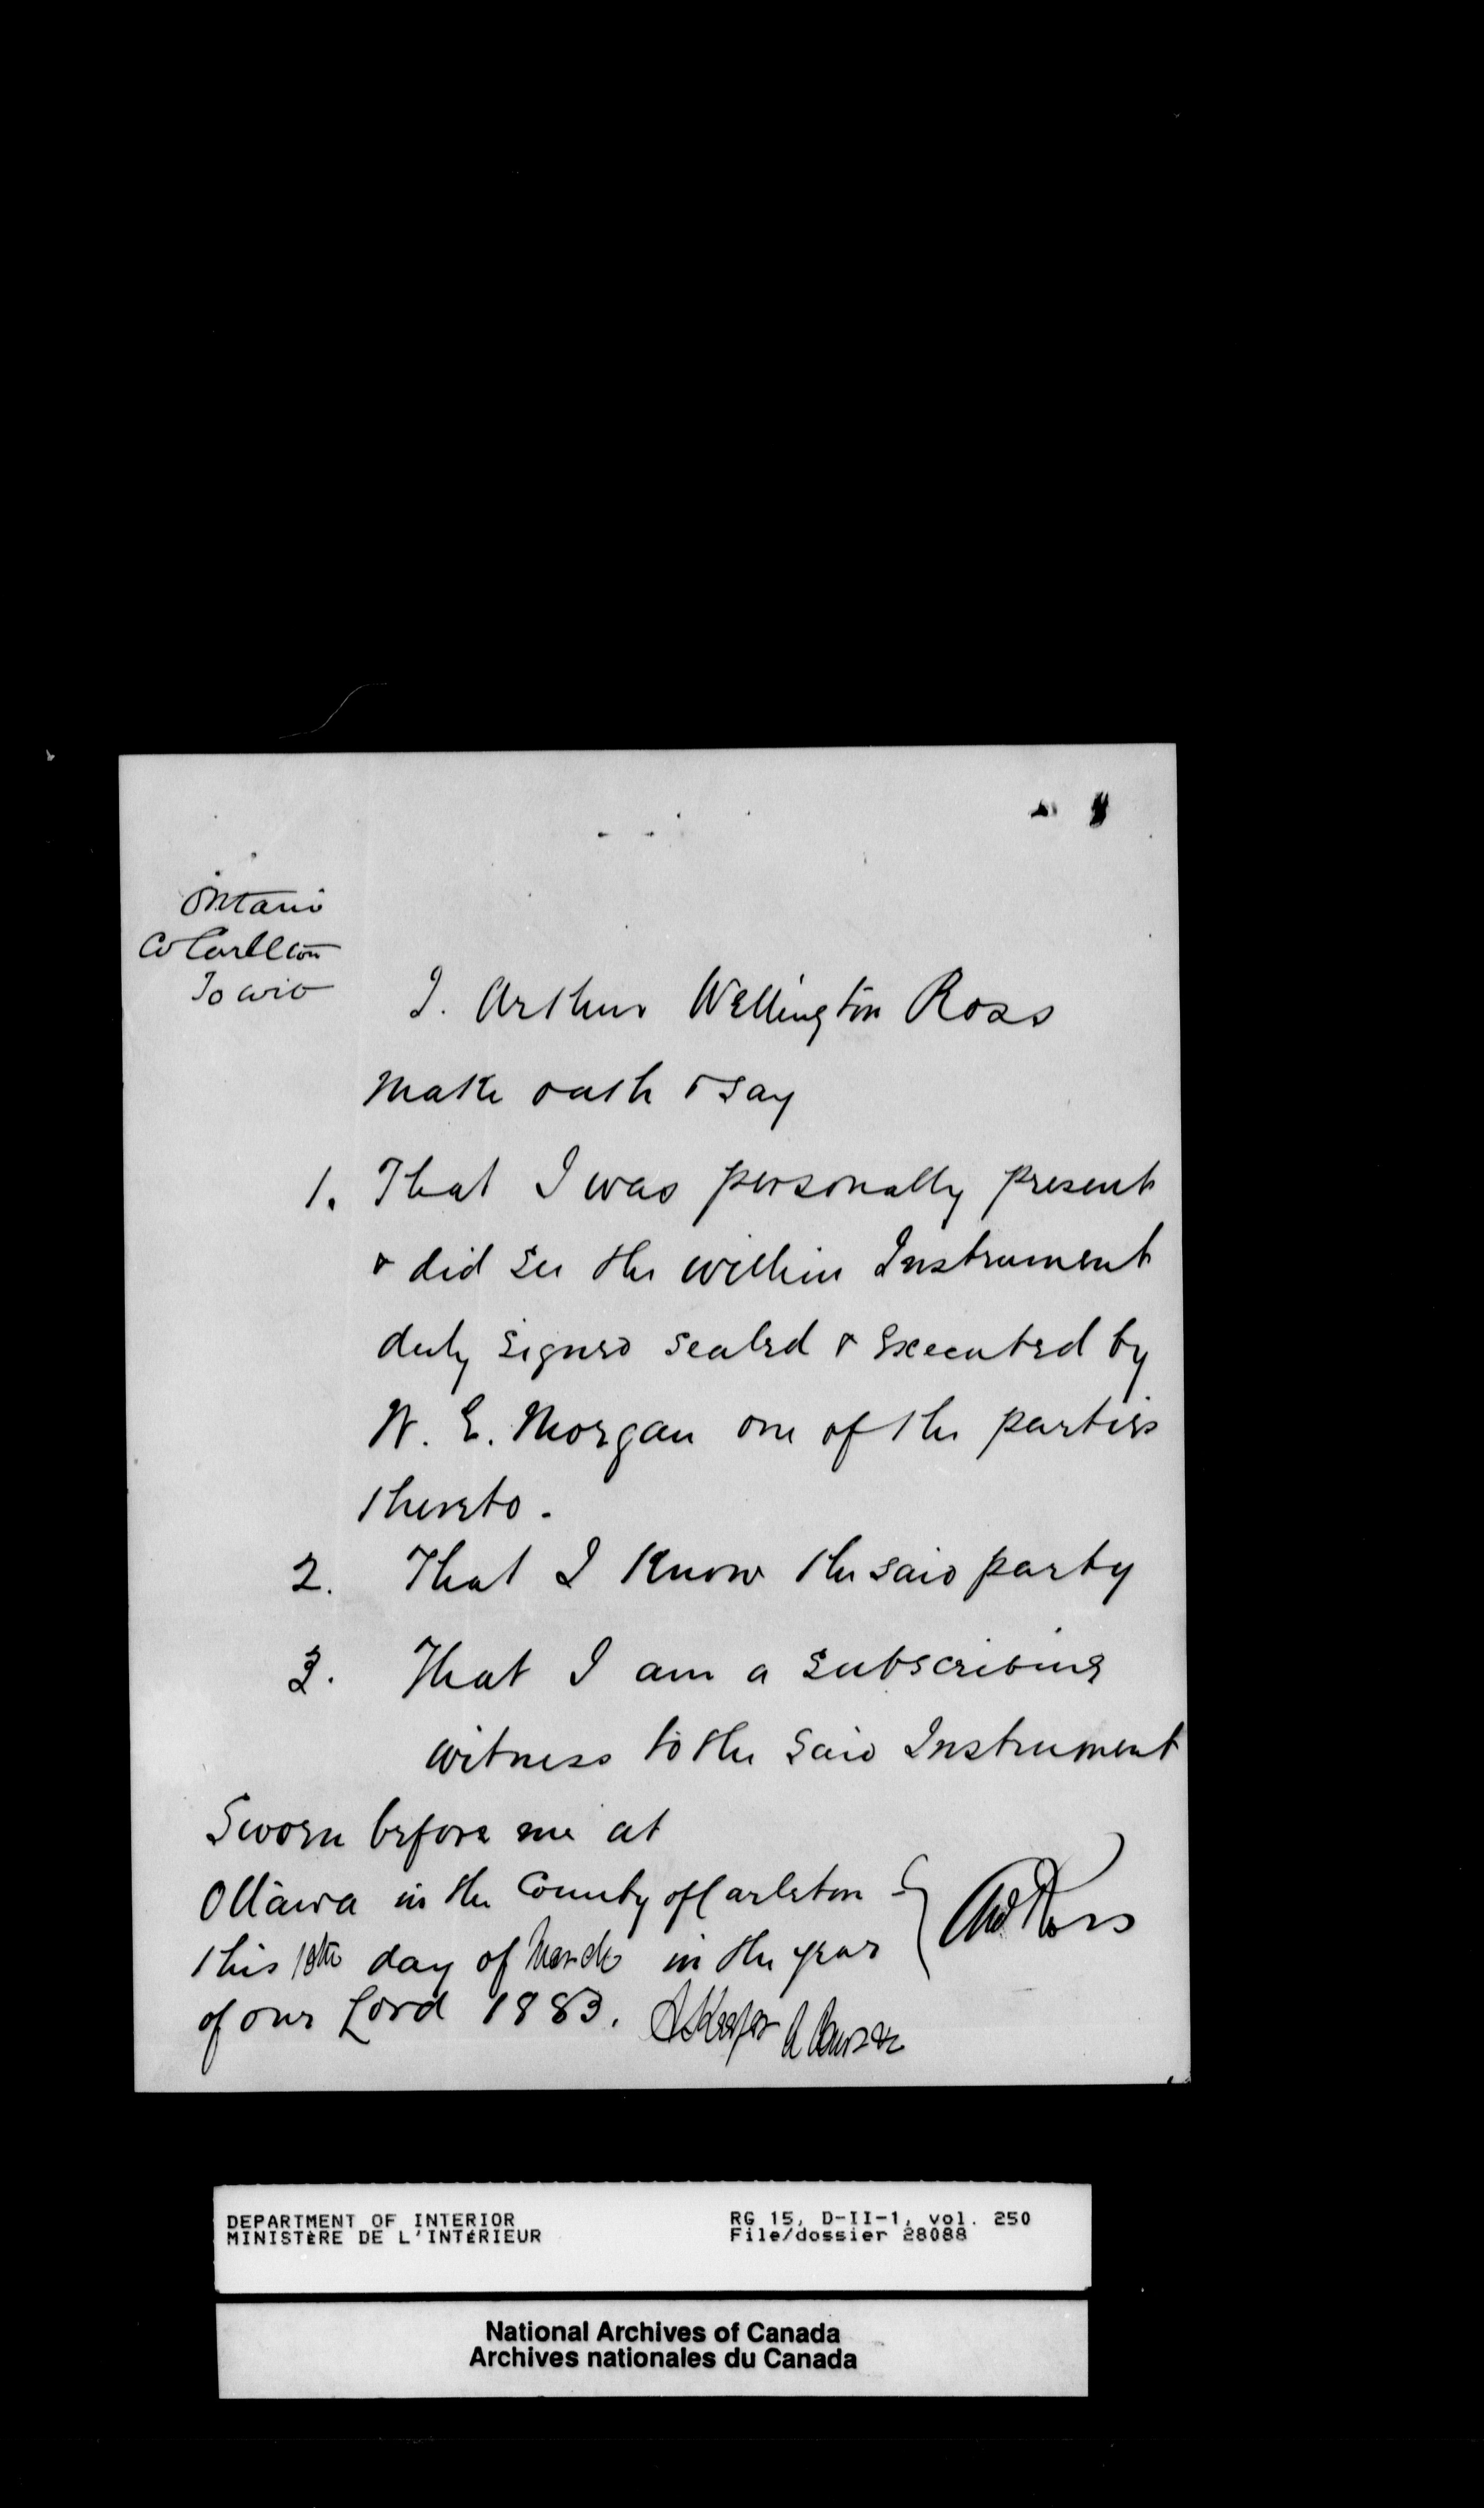 Ontario
Co Carleton
To wit
I. Arthur Wellington Ross
make oath & say
1. That I was personally present
& did see the within Instrument
duly signed sealed & executed by
W. E. Morgan one of the parties
thereto.
2. That I know the said party
3. That I am a subscribing
witness to the said Instrument
Sworn before me at
Ottawa in the County of Carleton
this day of March in the year
of our Lord 1883.
AW Ross
DEPARTMENT OF INTERIOR
MINISTÈRE DE L'INTÉRIEUR
RG 15, D-II-1, vol. 250
File/dossier 28088
National Archives of Canada
Archives nationales du Canada